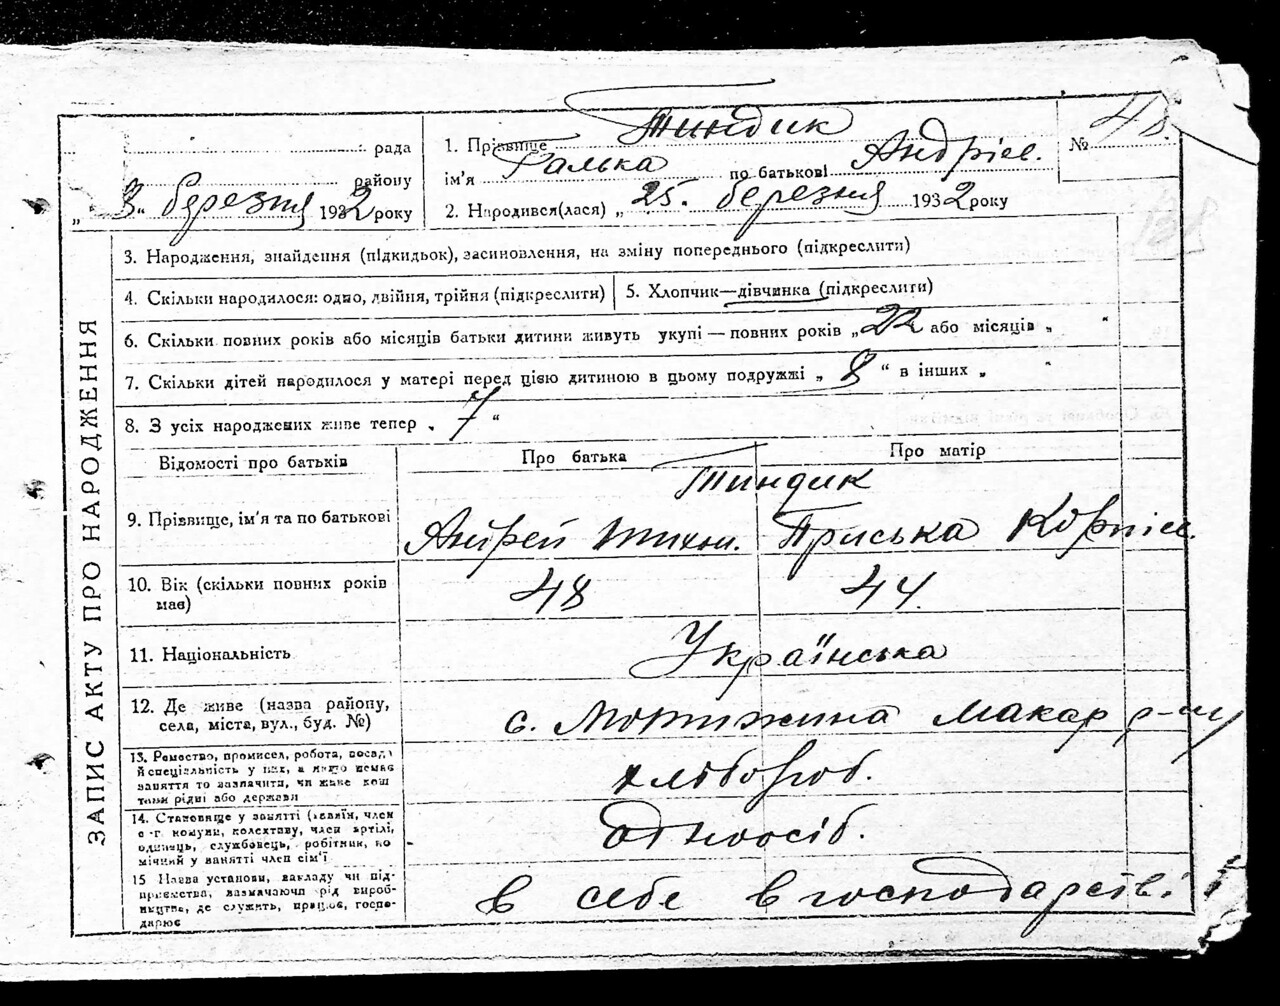 ЗАПИС АКТУ ПРО НАРОДЖЕННЯ
рада
району
„ 3 “ березня 1932 року
1. Прізвище Тиндик
ім'я Галька по батькові Андріев.
2. Народився(лася) „ 25. березня 1932 року
№ 48.
3. Народження, знайдення (підкидьок), засиновлення, на зміну попереднього (підкреслити)
4. Скільки народилося: одно, двійня, трійня (підкреслити)
5. Хлопчик—дівчинка (підкреслити)
6. Скільки повних років або місяців батьки дитини живуть укупі — повних років „22 або місяців „ “
7. Скільки дітей народилося у матері перед цією дитиною в цьому подружжі „ 8 “ в інших „ “
8. З усіх народжених живе тепер „ 7 “
Відомості про батьків Про батька Про матір
Тиндик
9. Прізвище, ім'я та по батькові Андрей Тихон. Приська Корніев.
10. Вік (скільки повних років має) 48 44.
11. Національність Українська
12. Де живе (назва району, села, міста, вул., буд. №) с. Мотижина Макар р-ну
13. Ремество, промисел, робота, посада
й спеціальність у них, а якщо немає
заняття то зазначити, чи живе кош
тами рідні або держави
хлібороб.
14. Становище у занятті (хазяїн, член
с-г. комуни, колективу, член артілі,
одинець, службовець, робітник, по
мічний у занятті член сім'ї
одноосіб.
15 Назва установи, закладу чи під-
приємства, зазначаючи рід вироб-
ництва, де служить, працює, госпо-
дарює
в себе в господарстві